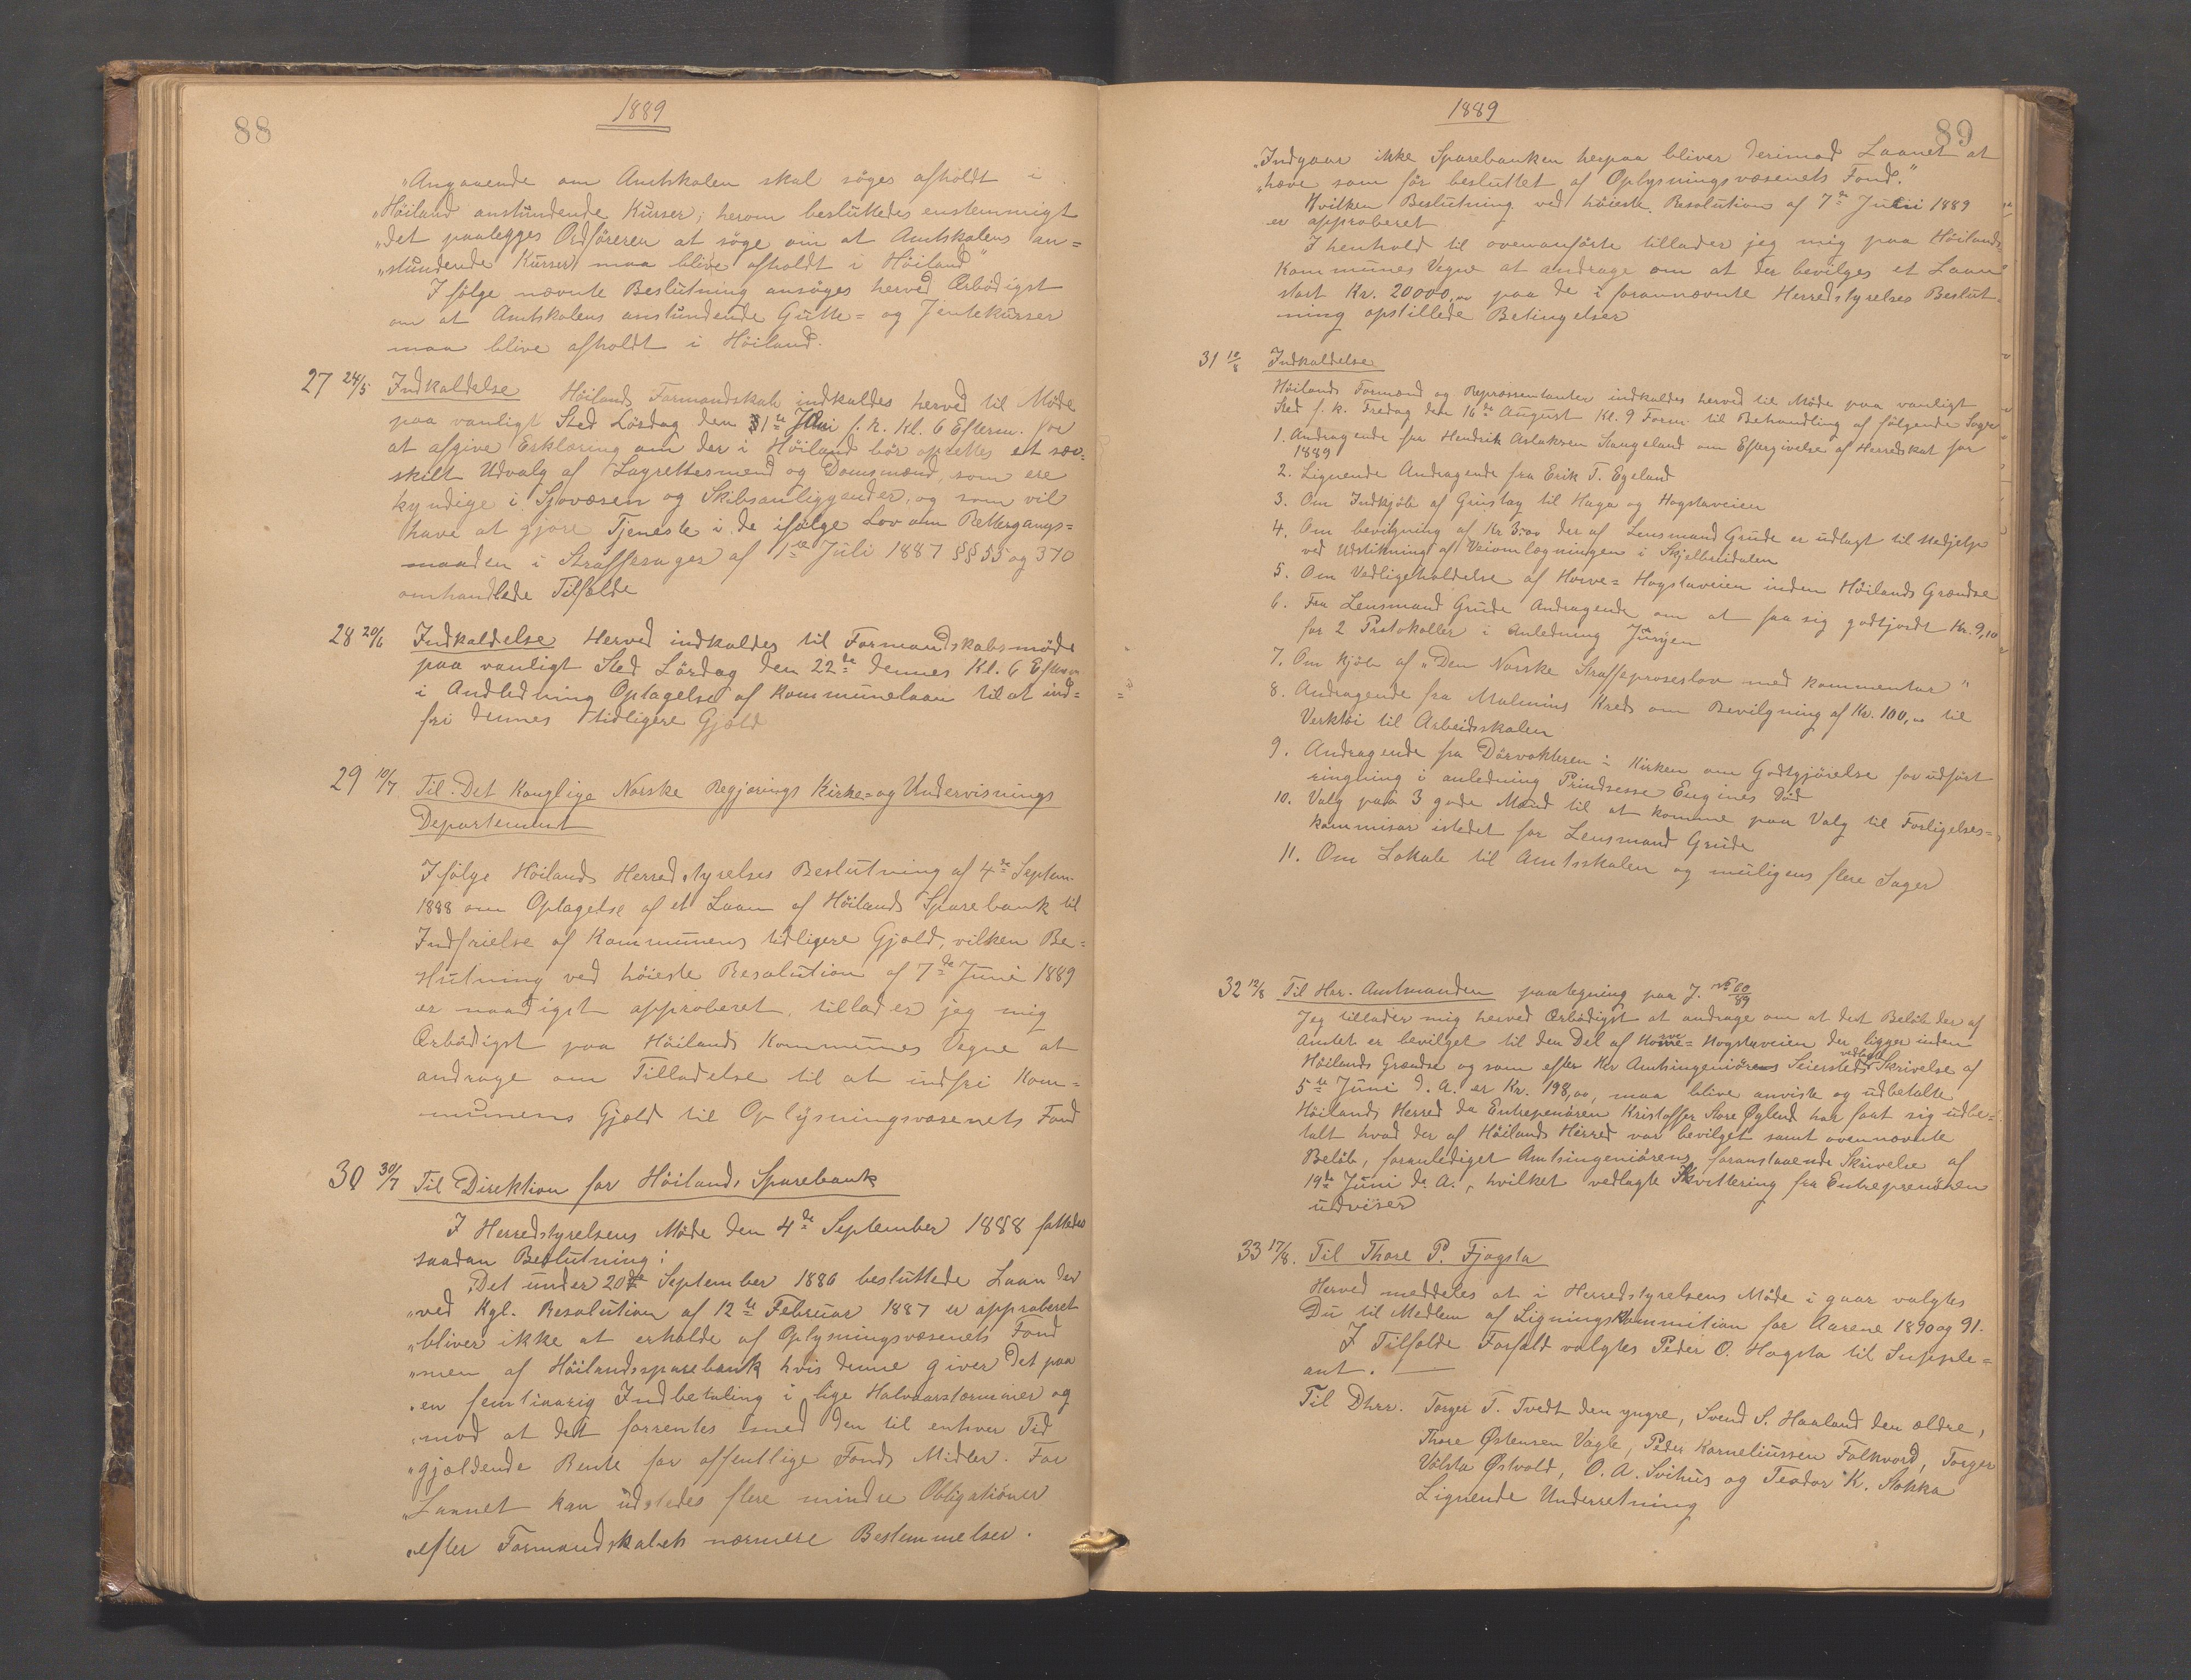 88
1889
„Angaaende om Amtskolen skal søges afholdt i
„Höiland anstundende Kurser; herom besluttedes enstemmigt
„det paalegges Ordföreren at söge om at Amtskolens an=
„stundende Kurser maa blive afholdt i Höiland"
I fölge nævnte Beslutning ansöges herved Ærbödigst
om at Amtskolens anstundende Gutte= og Jentekurser
maa blive afholdt i Höiland.
27 24/5 Indkaldelse Höilands Formandskab indkaldes herved til Möde
paa vanligt Sted Lördag den 1ste Juni f. k. Kl. 6 Efterm. for
at afgive Erklæring om der i Höiland bör oprettes et sær=
skilt Udvalg af Lagrettesmend og Domsmænd, som ere
kyndige i Sjøvæsen og Skibsanliggander, og som vil
have at gjøre Tjeneste i de ifølge Lov om Rettergangs=
maaden i Straffesager af 1ste Juli 1887 §§ 55 og 370
omhandlede Tilfælde
28 20/6 Indkaldelse Herved indkaldes til Formandskabsmöde
paa vanligt Sted Lördag den 22de dennes Kl. 6 Efterm
i Andledning Optagelse af Kommunelaan til at ind=
fri dennes tidligere Gjæld
29 10/7 Til Det Konglige Norske Regjerings Kirke= og Undervisnings
Departement
Ifölge Höilands Herredstyrelses Beslutning af 4de Septem.
1888 om Optagelse af et Laan af Höilands Sparebank til
Indfrielse af Kommunens tidligere Gjæld, vilken Be=
slutning ved höieste Resolution af 7de Juni 1889
er naadigst approberet, tillader jeg mig
Ærbödigst paa Höilands Kommunes Vegne at
andrage om Tilladelse til at indfri Kom=
munens Gjæld til Oplysningsvæsenets Fond
30 30/7 Til Direktion for Höilands Sparebank
I Herredstyrelsens Möde den 4de September 1888 fattedes
saadan Beslutning:
„Det under 20de September 1886 besluttede Laan der
„ved Kgl. Resolution af 12te Februar 1887 er approberet
„bliver ikke at erholde af Oplysningsvæsenets Fond
„men af Höilandssparebank hvis denne giver det paa
„en femtiaarig Indbetaling i lige Halvaarsterminer og
„mod at det forrentes med den til enhver Tid
„gjældende Rente for offentlige Fonds Midler. For
„Laanet kan udstedes flere mindre Obligationer
„efter Formandskabets nærmere Bestemmelser.
89
1889
„Indgaar ikke Sparebanken herpaa bliver derimod Laanet at
„hæve som før besluttet af Oplysningsvæsenets Fond."
Hvilken Beslutning ved höieste Resolution af 7de Juni 1889
er approberet
I henhold til ovenanførte tillader jeg mig paa Höilands
Kommunes Vegne at andrage om at der bevilges et Laan
stort Kr. 20000,00 paa de i forannævnte Herredstyrelses Beslut=
ning opstillede Betingelser
31 10/8 Indkaldelse
Höilands Formænd og Repræsentanter indkaldes herved til Möde paa vanligt
Sted f. k. Fredag den 16de August Kl. 9 Form. til Behandling af fölgende Sager
1. Andragende fra Hendrik Aslaksen Stangeland om Eftergivelse af Herredskat for
1889
2. Lignende Andragende fra Erik T. Egeland
3. Om Indkjöb af Grustag til Haga og Hogstaveien
4. Om bevilgning af Kr 3,00 der af Lensmand Grude er udlagt til Medjelp
ved Udstikning af Veiomlægningen i Skjelbreidalen
5. Om Vedligeholdelse af Horve= Hogstaveien inden Höilands Grændse
6. Fra Lensmand Grude Andragende om at faa sig godtjordt Kr. 9,10
for 2 Protokoller i Anledning Juryen
7. Om Kjöb af „Den Norske Straffeproseslov med Kommentar"
8. Andragende fra Malmins Kreds om Bevilgning af Kr. 100,00 til
Verktöi til Arbeidsskolen
9. Andragende fra Dörvokteren i Kirken om Godtgjörelse for udfört
ringning i anledning Prindsesse Eugines Död
10. Valg paa 3 gode Mænd til at komme paa Valg til Forligelses=
kommisær istedet for Lensmand Grude
11. Om Lokale til Amtsskolen og muligens flere Sager
32 12/8 Til Hr. Amtmanden paategning paa J. No 60/89
Jeg tillader mig herved Ærbödigst at andrage om at det Belöb der af
Amtet er bevilget til den Del af Horve= Hogstaveien der ligger inden
Höilands Grændse og som efter Hr Amtsingeniörens Seiersteds vedlagte Skrivelse af
5te Juni d. A. er Kr. 198,00, maa blive anviste og udbetalte
Höilands Herred da Entrepenören Kristoffer Aore Øglend har faat sig udbe=
talt hvad der af Höilands Herred var bevilget samt ovennævnte
Belöb, foranlediget Amtsingeniörens foranstaaende Skrivelse af
19de Juni d. A., hvilket vedlagte Kvittering fra Entreprenören
udviser
33 17/8. Til Thore P. Fjogsta
Herved meddeles at i Herredstyrelsens Möde i gaar valgtes
Du til Medlem af Ligningskommition for Aarene 1890 og 91.
I Tilfælde Forfald valgtes Peder O. Hogsta til Supple=
ant.
Til Dhrr. Torger T. Tvedt den yngre, Svend S. Haaland den ældre,
Thore Østensen Vagle, Peder Korneliussen Folkvord, Torger
Völsta Østvold, O. A. Svihus og Teodor K. Stokka
Lignende Underretning